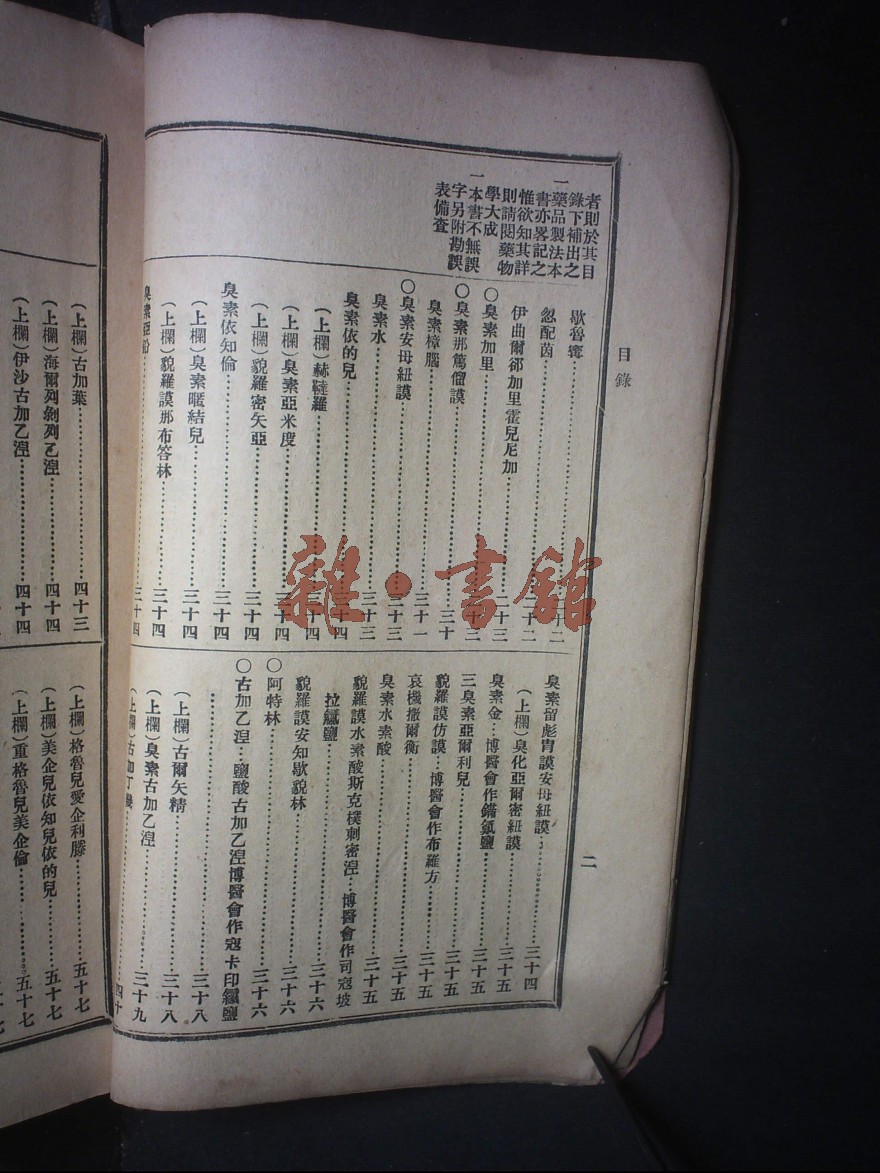 目錄
二
者則於其目
錄下補出之
一藥品製法本
書亦畧記之
惟欲知其詳
則請閱藥物
學大成
一本書不無誤
字另附勘誤
表備查
歇魯㝯
忽配茵………三十二
伊曲爾䣍加里霍兒尼加………三十二
○臭素加里………三十三
○臭素那篤僧謨………三十三
臭素樟腦………三十
○臭素安母紐謨………三十一
臭素水………三十三
臭素依的兒………三十三
(上欄)赫韃羅………三十四
(上欄)臭素亞米度………三十四
(上欄)貌羅密矢亞………三十四
臭素依知倫………三十四
(上欄)臭素暱結兒………三十四
(上欄)貌羅謨那布答林………三十四
臭素亞鉛………三十四
臭素留彪胄謨安母紐謨………三十四
(上欄)臭化亞爾密紐謨………三十五
臭素金…博醫會作鏀氣鹽………三十五
三臭素亞爾利兒………三十五
貌羅謨仿謨…博醫會作布羅方………三十五
哀機撒爾衡………三十五
臭素水素酸………三十五
貌羅謨水素酸斯克樸刺密湼…博醫會作司寇坡
拉鹽………三十六
貌羅謨安知歇貌林………三十六
○阿特林………三十六
○古加乙湼…鹽酸古加乙湼博醫會作寇卡印鹽
………三十八
(上欄)古爾矢精………三十八
(上欄)臭素古加乙湼………三十九
(上欄)古加丁幾………四十
(上欄)古加葉………四十三
(上欄)海爾列剝列乙湼………四十四
(上欄)伊沙古加乙湼………四十四
(上欄)格魯兒愛企利滕………五十七
(上欄)美企兒依知兒依的兒………五十七
(上欄)重格魯兒美企倫………五十七
雜·書館